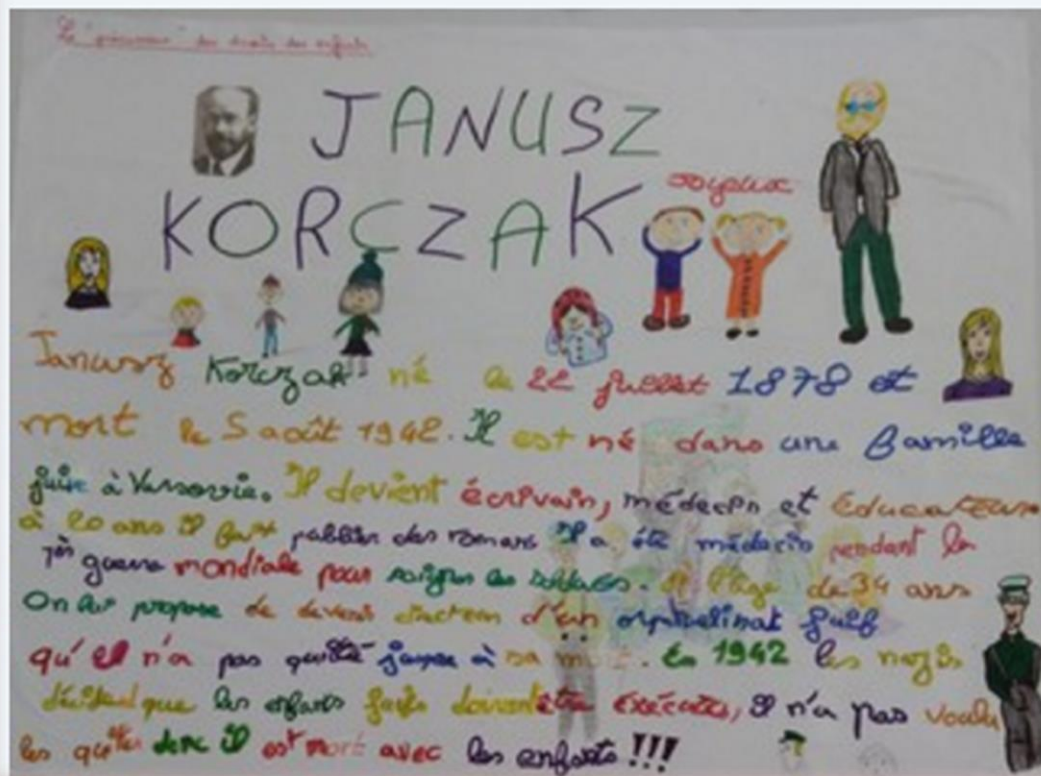 Le "précurseur" des droits des enfants
JANUSZ
KORCZAK
joyeux
Janusz Korczak né le 22 juillet 1878 et
mort le 5 août 1942. Il est né dans une famille
juive à Varsovie. Il devient écrivain, médecin et éducateur
à 20 ans il fait publier des romans Il a été médecin pendant la
guerre mondiale pour soigner les soldats. A l'âge de 34 ans
On lui propose de devenir directeur d'un orphelinat juif
qu'il n'a pas quitté jusque à sa mort. En 1942 les nazis
décident que les enfants juifs doivent être exécutés, il n'a pas voulu
les quitter donc il est mort avec les enfants !!!